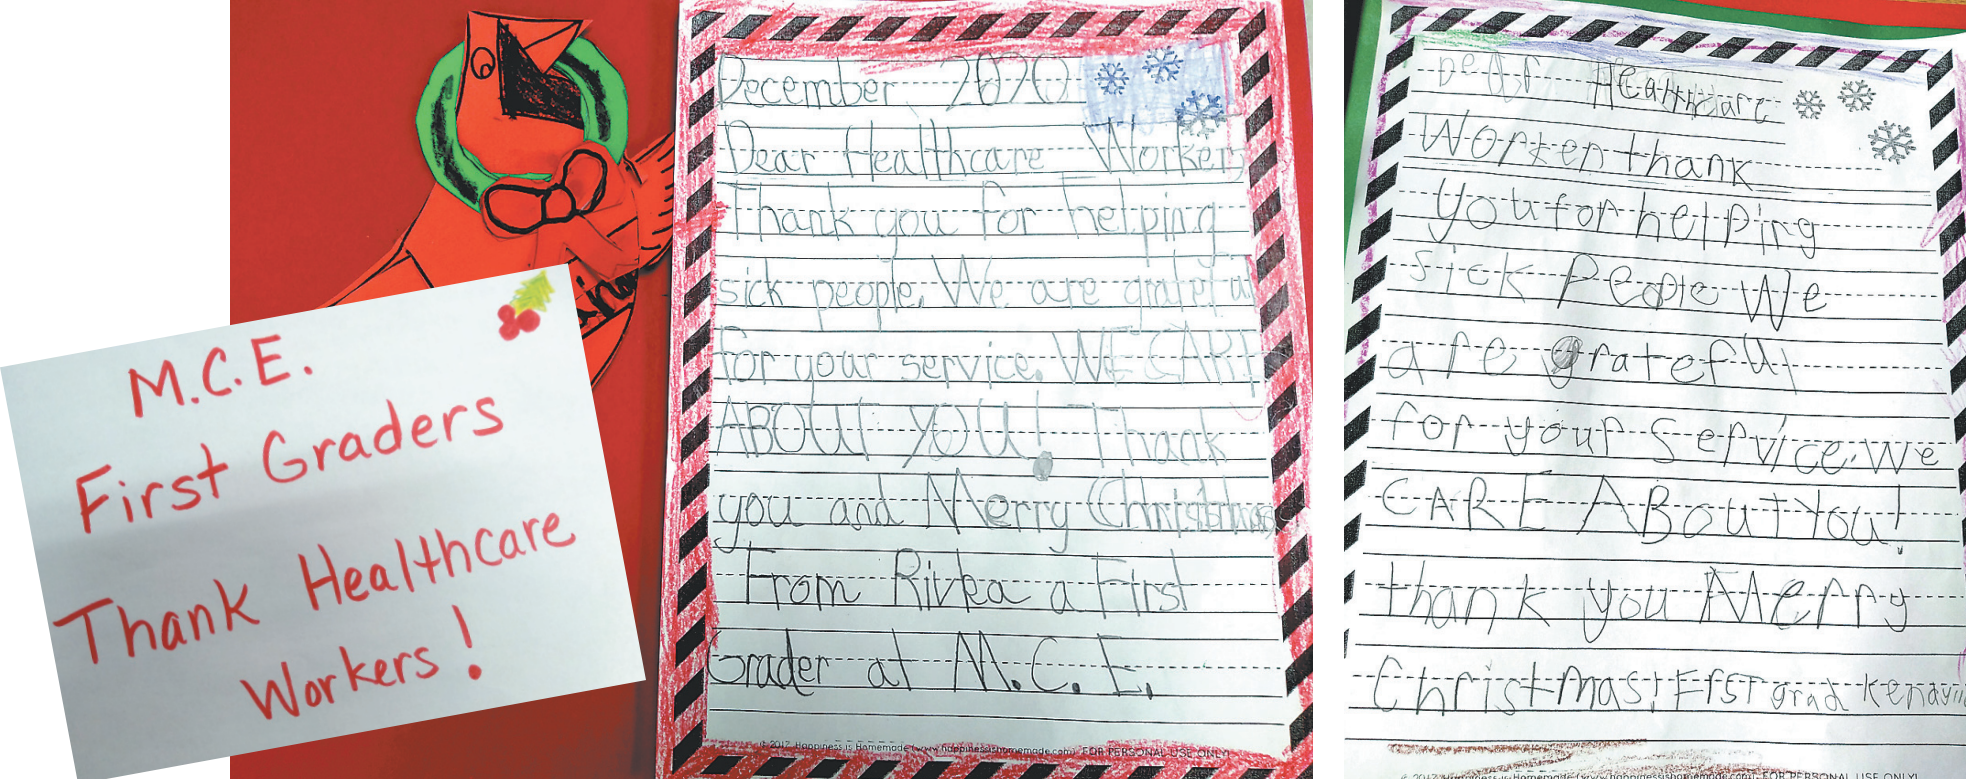 M.C.E.
First Graders
Thank Healthcare
Workers!
December 2020
Dear Healthcare Workers
Thank you for helping
sick people. We are grateful
for your service. WE CARE
ABOUT YOU! Thank
you and Merry Christmas
From Rivka a First
Grader at M.C.E.
© 2017 Happiness is Homemade (www.happinessishomemade.com) FOR PERSONAL USE ONLY
Dear Healthcare
Worker thank
you for helping
sick people We
are grateful
for your service. We
CARE ABout You!
thank you Merry
Christmas! FrsT grad
© 2017 Happiness is Homemade (www.happinessishomemade.com) FOR PERSONAL USE ONLY